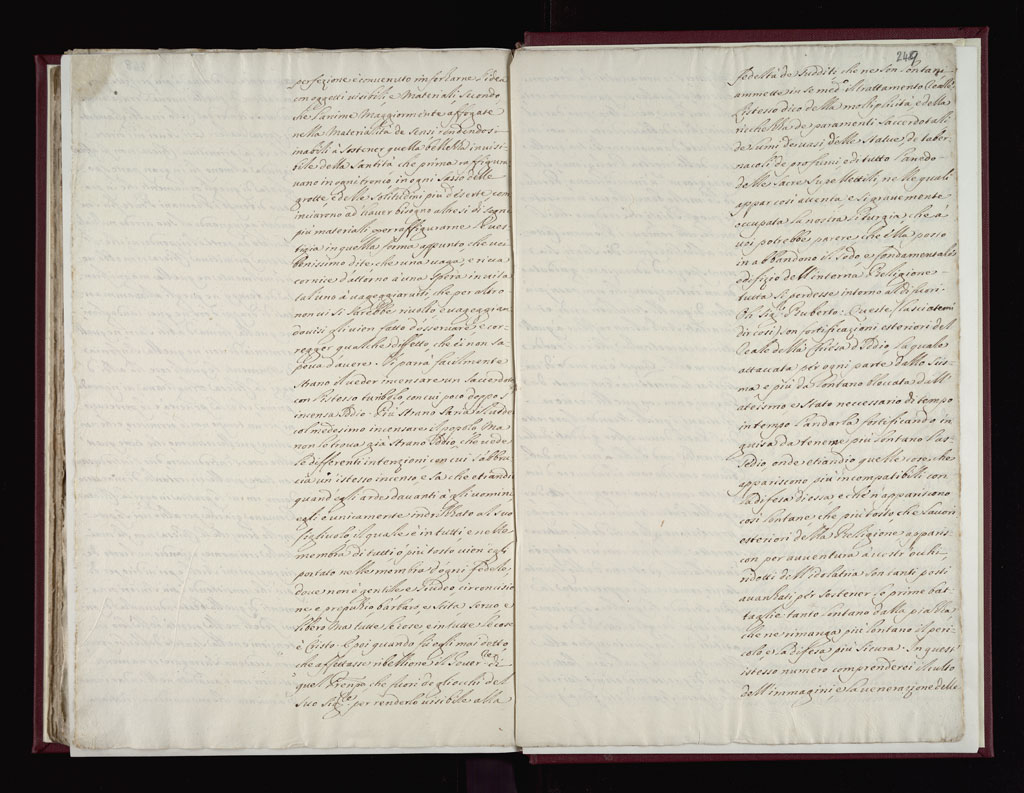 perfezione è convenuto in formarne l'idea
con oggetti visibili, e Materiali, secondo
che l'anime Maggiormente affogate
nella Materialità de Sensi rendendosi
inabili à sostener quella bellezza invisi-
bile della Santità che prima raffigura-
vano in ogni tronco, in ogni sasso delle
grotte, e delle solitudini più deserte com-
inciarono ad haver bisogno altresì di segni
più materiali per raffigurarne
in quella forma appunto che voi
benissimo dite che una vaga, e ricca
cornice d'attorno à uno invita
taluno à vagheggiar che per altro
non vi si sarebbe rivolto e vagheggian-
dovisi gli vien fatto d'osservare, e cor-
regger qualche difetto, che ei non sa-
peva d'avere. Vi parrà facilmente
strano il veder incensare un sacerdote
con l'istesso turibolo, con cui poco doppo s'
incensa Iddio. Più strano sarà il veder
col medesimo incensare il popolo, Ma
non le tenga già strano Iddio, che vede
le differenti intenzioni con cui s'abbru-
cia un istesso incenso, e sa che etiandio
quand'egli arde davanti à gli uomini
egli è unicamente indirizzato al suo
figlivolo, il quale è in tutti, e nelle
membra di tutti, o più tosto vien egli
portato nelle membra d'ogni fedele
dove non è gentile, e Giudeo, circoncisio-
ne e prepuzio, barbaro, e Scita, servo, e
libero Ma tutte le cose, e in tutte le cose
è Cristo. E poi quando fù egli mai detto,
che affettasse ribellione al
quel che fuori degli occhi del
suo per renderlo visibile alla
249
fedeltà de sudditi che ne son lontani
ammette in se med.o il trattamento Reale.
L'istesso dico della moltiplicità, e della
ricchezza de paramenti saccerdotali
de lumi de vasi delle statue, di taber-
nacoli, de profumi e di tutto l'arredo
delle sacre suppellettili, nelle quali
appar così attenta, e sì gravemente
occupata la nostra liturgia che à
voi potrebbe parere che ella posto
in abbandono il sodo, e fondamentale
edifizio dell'interna Religione
tutta si perdesse intorno al di fuori.
Oh Sig.r Ruberto: Queste (lasciatemi
dir così) son fortificazioni esteriori del
Reale della Chiesa d'Iddio, la quale
attaccata per ogni parte dallo scis-
ma, e più da lontano bloccata dall'
ateismo è stato necessario di tempo
in tempo l'andarla fortificando in
guisa da tenerne più lontano l'as-
sedio, onde etiandio quelle cose che
appariscono più incompatibili con
la difesa di essa, e che n'appariscono
così lontane, che più tosto, che lavori
esteriori della Religione appari-
scon per avventura à vostri occhi,
ridotti dell'idolatria son tanti posti
avanzati per sostener le prime bat-
taglie tanto lontano dalla piazza
che ne rimanga più lontano il peri-
colo, e la difesa più sicura. In quest'
istesso numero comprenderei il culto
dell'immagini, e la venerazione delle